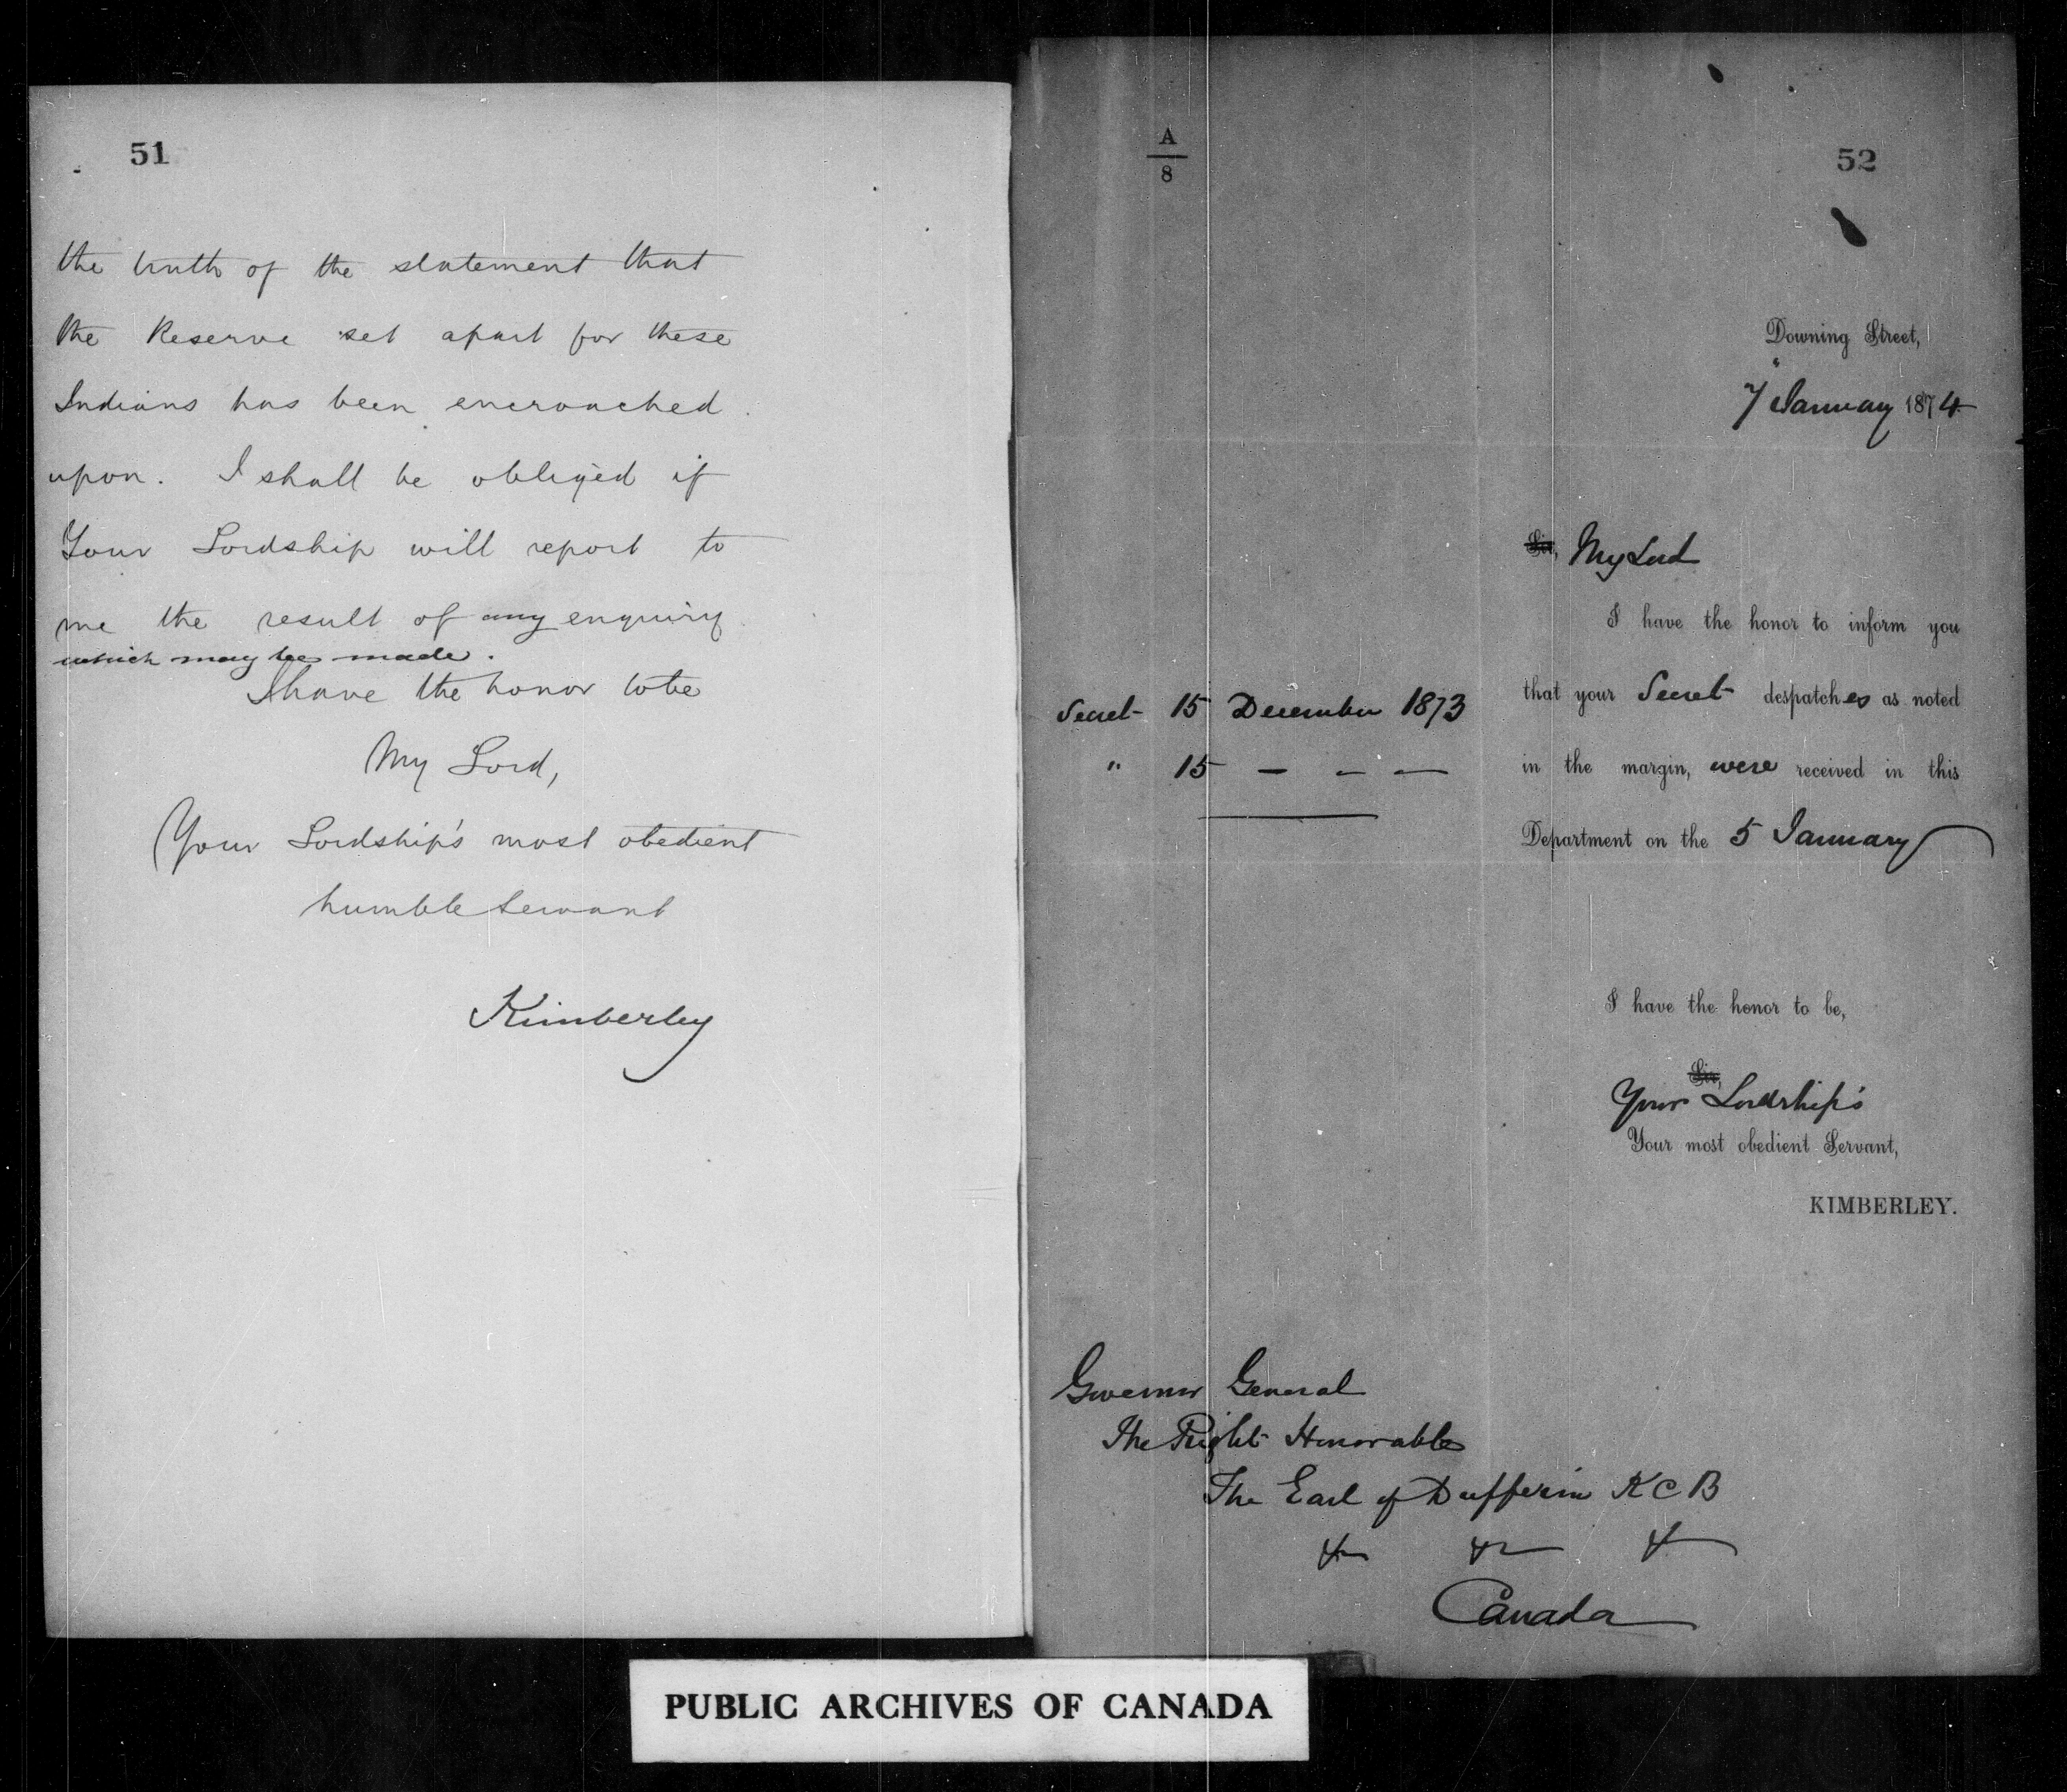 51
the truth of the statement that
the Reserve set apart for these
Indians has been encroached
upon. I shall be obliged if
Your Lordship will report to
me the result of any enquiry
which may be made.
I have the honor to be
My Lord,
Your Lordship's most obedient
humble servant
Kimberley
A
8
52
Downing Street,
7 January 1874
Sir, My Lord
I have the honor to inform you
that your Secret despatches as noted
in the margin, were received in this
Department on the 5 January
Secret 15 December 1873
" 15 — — —
I have the honor to be,
Sir,
Your Lordship's
Your most obedient Servant,
KIMBERLEY.
Governor General
The Right Honorable
The Earl of Dufferin KCB
& & &
Canada
PUBLIC ARCHIVES OF CANADA